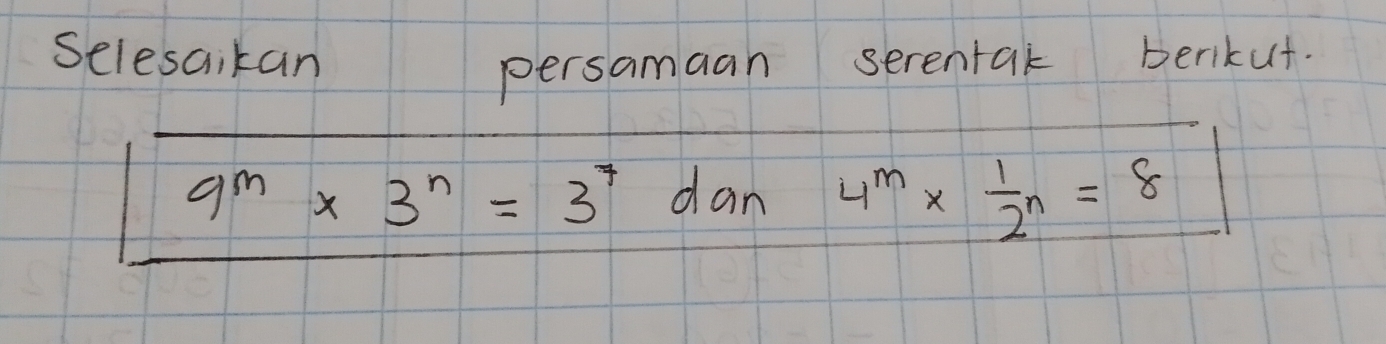 Selesaikan persamaan serentak berikut.
9^m × 3^n = 3^7 dan 4^m × 1/2^n = 8